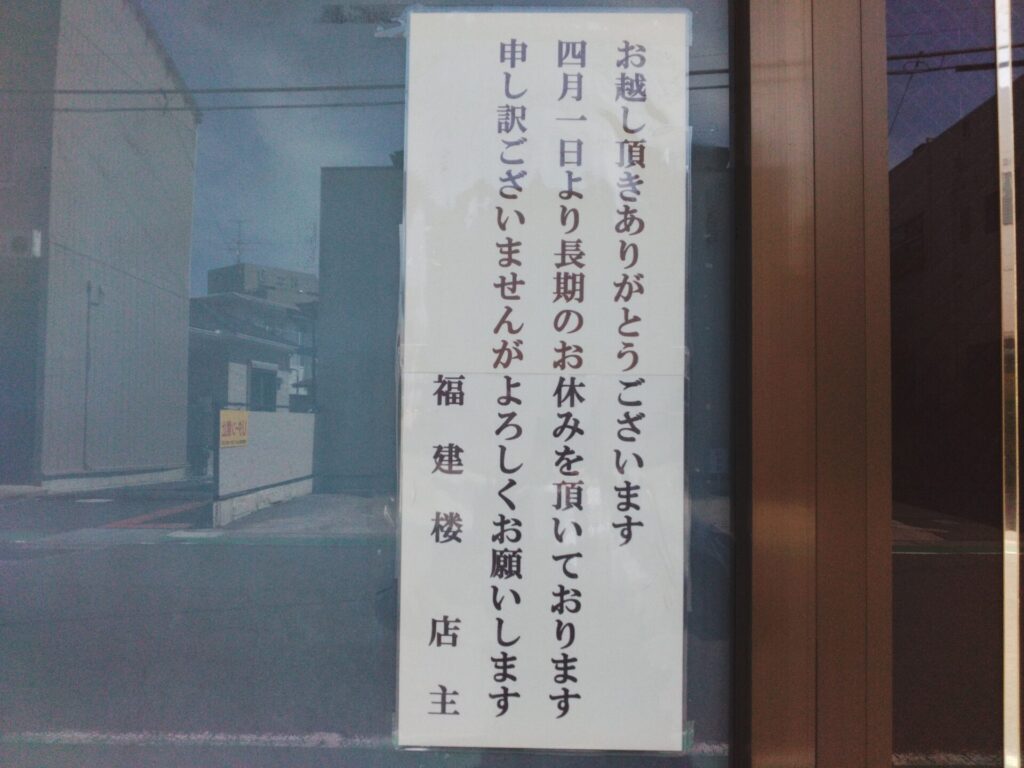 お越し頂きありがとうございます
四月一日より長期のお休みを頂いております
申し訳ございませんがよろしくお願いします
福建楼 店主